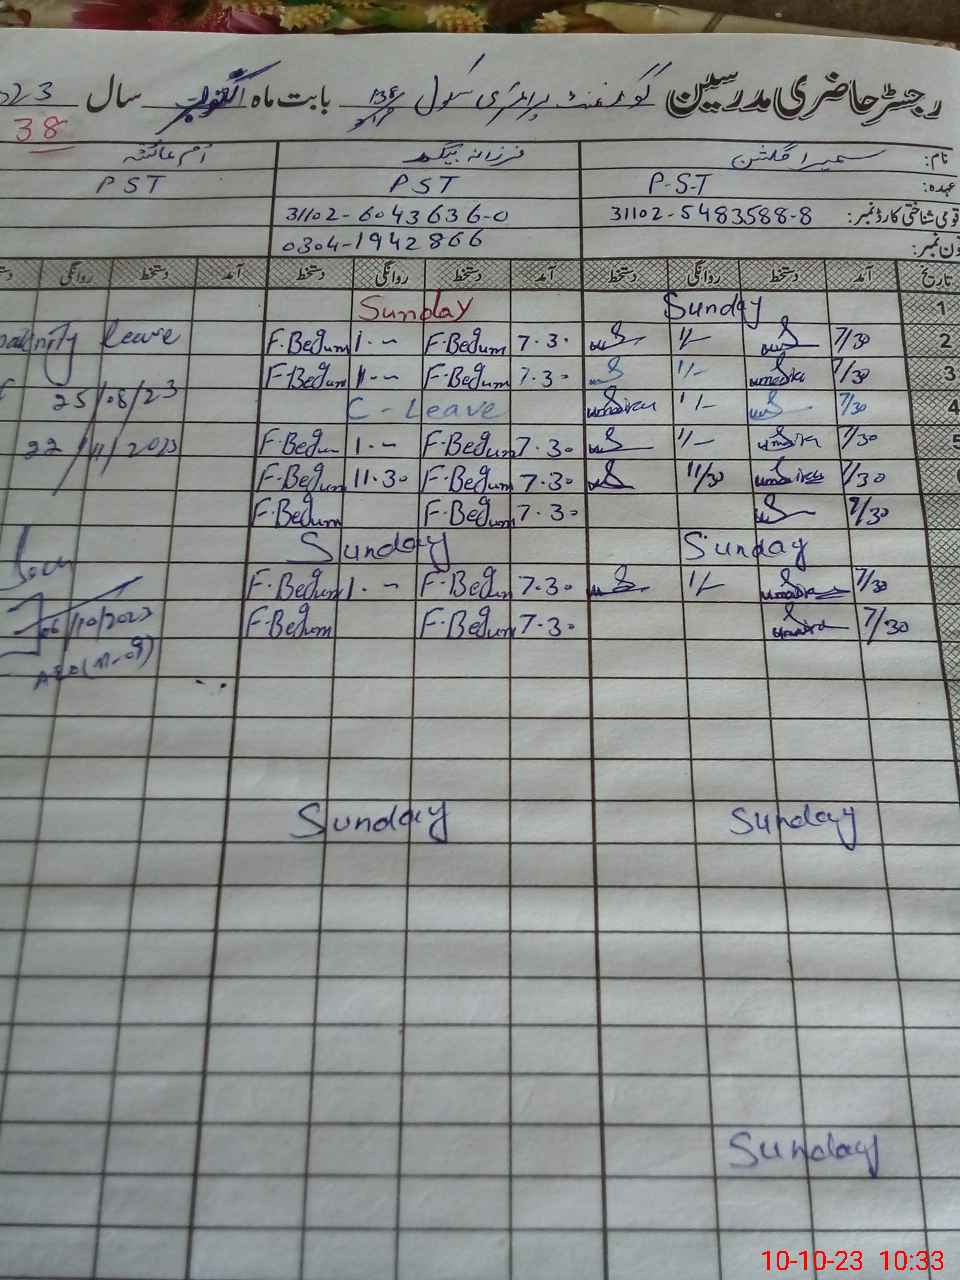 رجسٹر حاضری مدرسین گورنمنٹ پرائمری سکول 138 بابت ماہ اکتوبر سال 023
38
نام: سمیرا گلشن فرزانہ بیگم ام عائشہ
عہدہ: P-S-T PST PST
قومی شناختی کارڈ نمبر: 31102-5483588-8 31102-6043636-0
فون نمبر: 0304-1942866
تاریخ آمد دستخط روانگی دستخط آمد دستخط روانگی دستخط آمد دستخط روانگی
1 Sunday Sunday
2 7/30 1/- 7.30 F.Begum 1.-- F.Begum leave
3 7/30 1/- 7.30 F.Begum 1.-- F.Begum
4 7/30 1/- C-Leave 25/08/23
5 7/30 1/- 7.30 F.Begum 1.-- F.Begum 22/11/2023
7/30 11/30 7.30 F.Begum 11.30 F.Begum
7/30 7.30 F.Begum F.Begum
Sunday Sunday
7/30 1/- 7.30 F.Begum 1.-- F.Begum
7/30 7.30 F.Begum F.Begum 06/10/2023
Sunday Sunday
Sunday
10-10-23 10:33